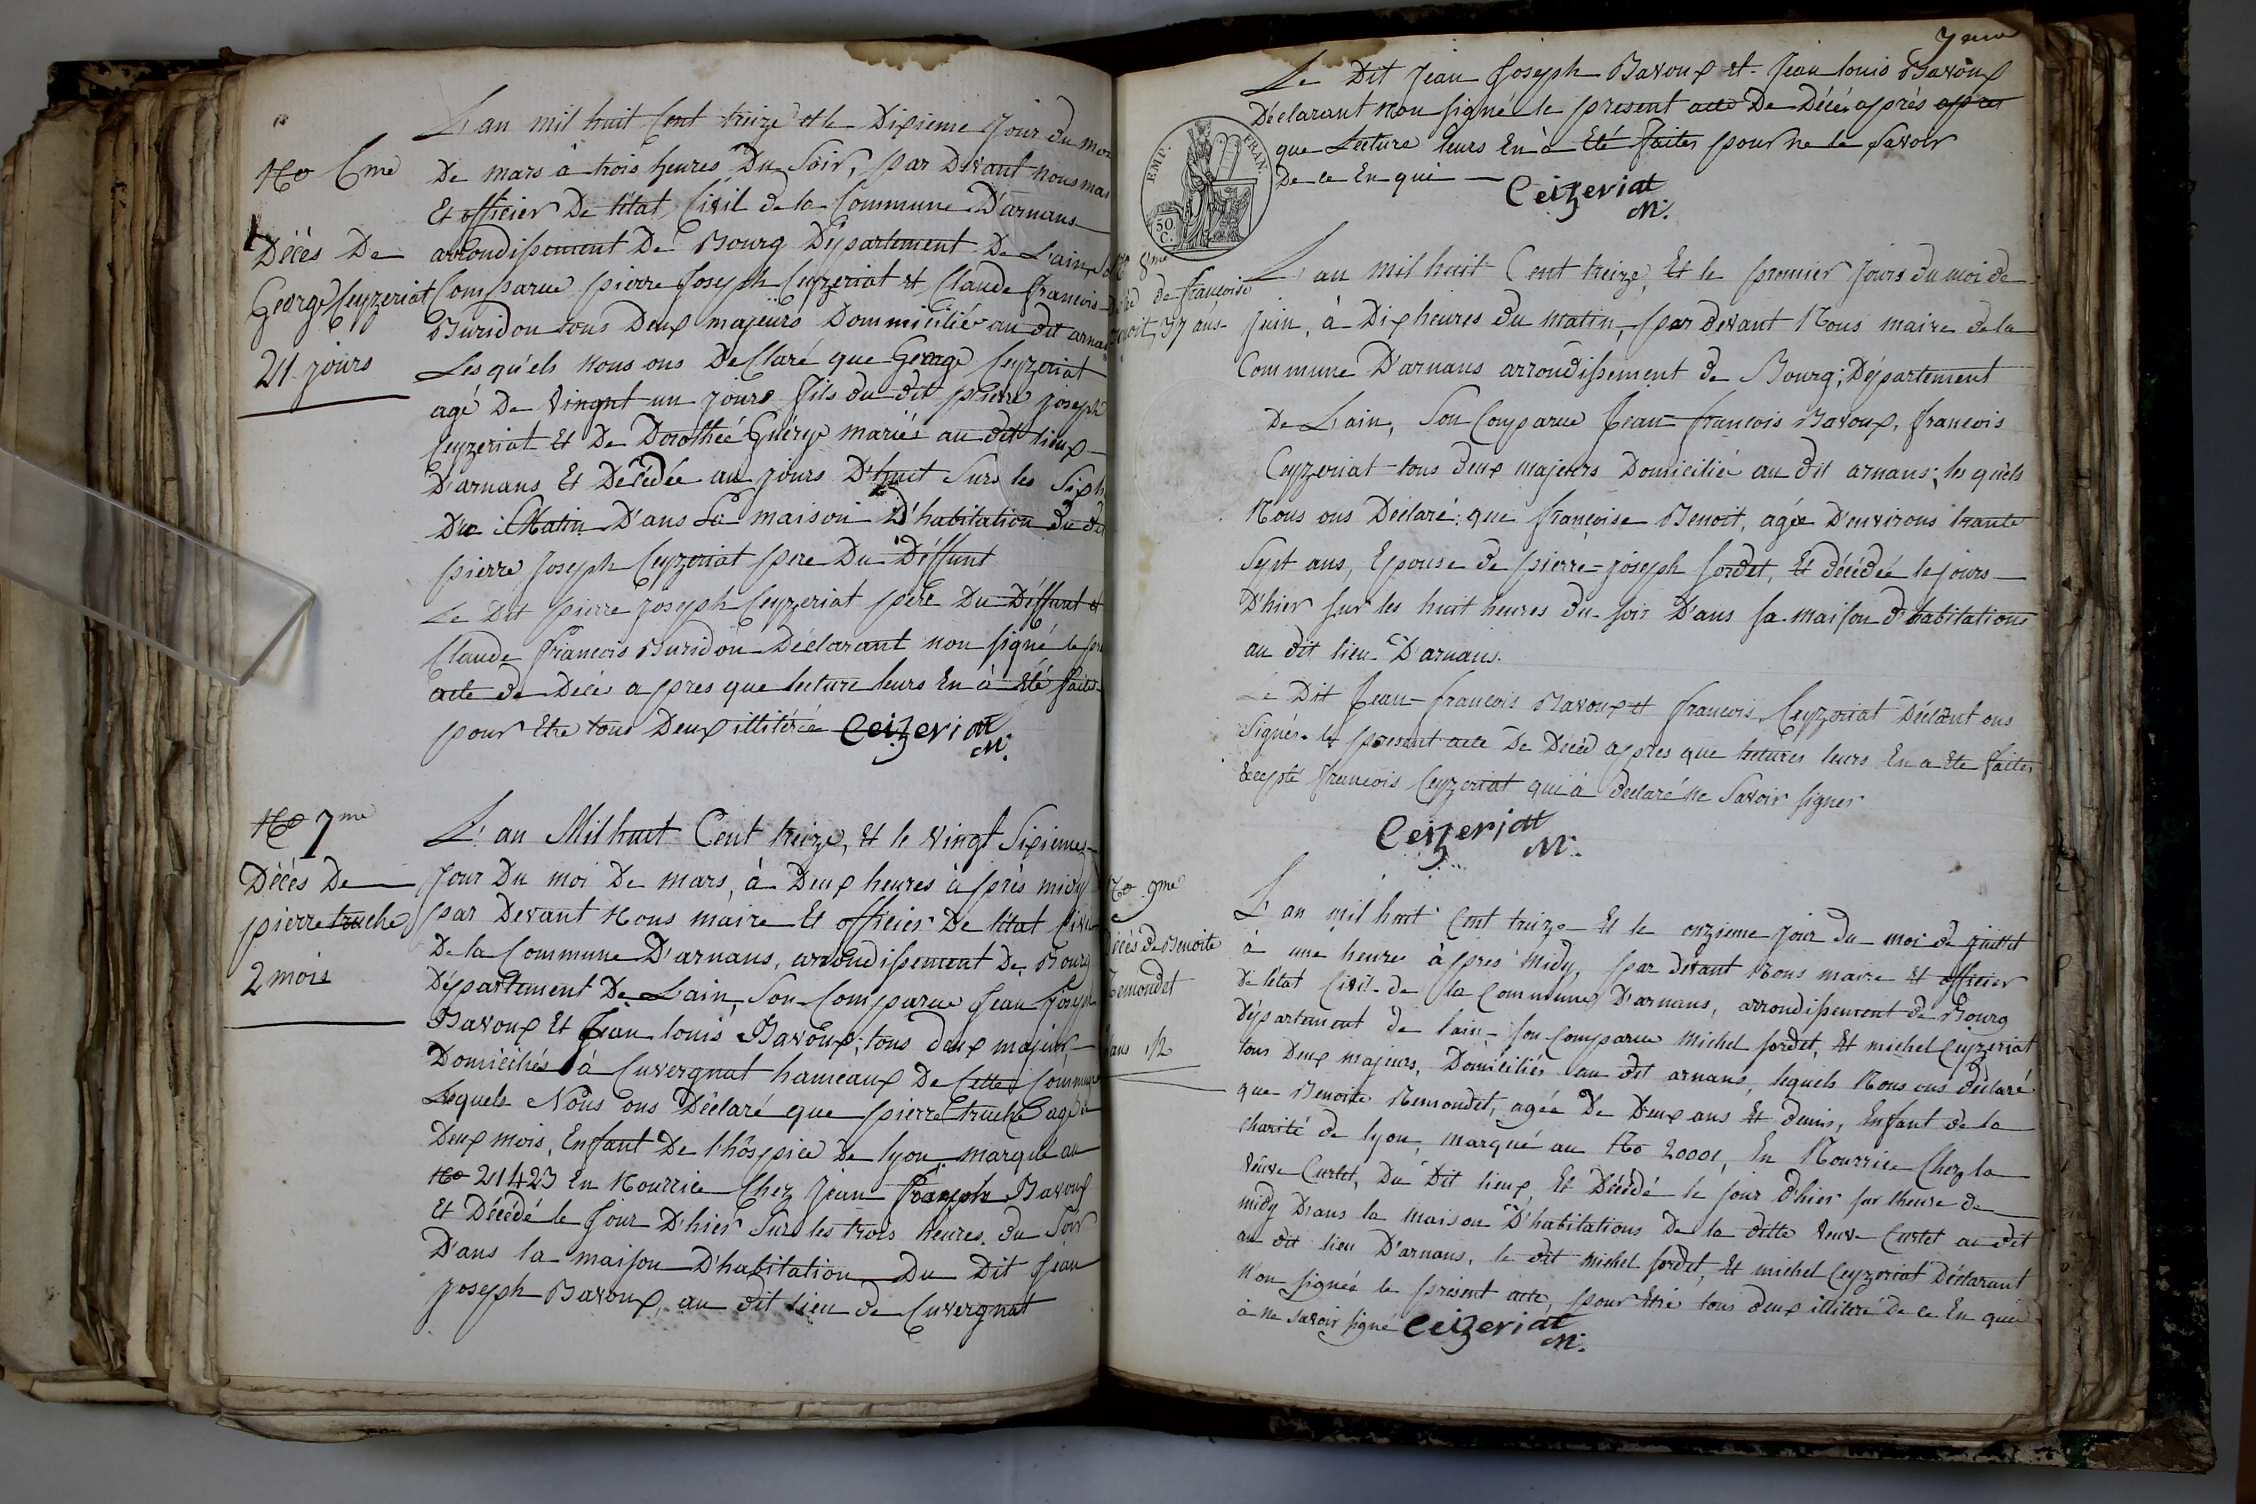 No 6me
Décès De
George Ceyzeriat
21 jours
L'an mil huit Cent treize et le Dixieme Jour du moi
De mars à trois heures Du Soir, par Devant nous mai
Et officier De l'état Civil de la Commune D'arnans
arrondissement De Bourg Département De L'ain,
Comparue pierre Joseph Ceyzeriat et Claude francois
Buridon tous Deux majeurs Dommicilié au dit arnans
Lesqu'els nous ons Declaré que George Ceyzeriat
agé De Vingnt un jours fils du dit pierre joseph
Ceyzeriat Et De Dorothée Guérye mariés au dit lieux
D'arnans Et Décédée au jours D'huit Surs les Six h
Du Matin D'ans La maison D'habitation Du dit
pierre Joseph Ceyzeriat pere Du Déffunt
Le Dit pierre joseph Ceyzeriat péré Du Déffunt et
Claude francois Buridon Déclarant non signé le pre
acte de Décé a pres que lecture leurs En à Eté faite
pour Etre tous Deux illitérée Ceizeriat
M.
No 7me
Décés De
pierre truche
2 mois
L'an Mil huit Cent treize, Et le vingt Sixieme
Jour Du moi De mars, à Deux heures à près midy
par Devant Nous maire Et officier De l'état Civil
De la Commune D'arnans, arrondissement De Bourg
Département De Lain, Son Comparue Jean Joseph
Bavoux Et Jean louis Bavoux, tous deux majeur
Domiciliés à Cuvergnat hameaux De Cette Commune
Lequels Nous ons Déclaré que pierre truche agé de
Deux mois, Enfant De l'hôspice De lyon marqué au
No 21423 En Nourrice Chez Jean Joseph Bavoux
Et Décédé le Jour D'hier Sur les trois heures du Soir
D'ans la maison D'habitation Du Dit Jean
Joseph Bavoux, au dit Lieu de Cuvergnat
7me
Le Dit Jean Joseph Bavoux et Jean louis Bavoux
Déclarant non signé le present acte De Décé après apres
que Lecture leurs En à Eté faites pour ne le savoir
De ce En qui Ceizeriat
M.
EMP. FRAN.
50 C.
No 8me
de françoise
37 ans
L'an mil huit Cent treize, Et le premier Jours du moi de
juin, à Dix heures du matin, par devant Nous maire de la
Commune D'arnans arrondissement de Bourg, Département
De Lain, Son Comparue Jean francois Bavoux, francois
Ceyzeriat tous deux majeurs Domicilié au dit arnans, les quels
Nous ons Déclaré que françoise Benoit, agée D'environs trante
Sept ans, Epouse de pierre joseph fordet, Et décédée le jours
D'hier sur les huit heures du soir D'ans sa maison d'habitations
au dit lieu D'arnans.
Le Dit Jean francois Bavoux et francois Ceyzeriat Déclarant ons
Signés le present acte De Décé après que lectures leurs En a Ete faites
Excepté francois Ceyzeriat qui à déclaré ne Savoir signer
Ceizeriat
M.
No 9me
Décès de Benoite
Remondet
ans 1/2
L'an mil huit Cent treize Et le onzieme jour du moi de juillet
à une heure à pres midy, par devant Nous maire Et officier
De létat Civil de la Commune D'arnans, arrondissement de Bourg
Département de lain, son Comparue Michel fordet, Et michel Ceyzeriat
tous Deux majeurs, Domiciliés au dit arnans, lequels Nous ons déclaré
que Benoite Remondet, agée De Deux ans Et demis, Enfant de la
charité de lyon, marqué au No 20001, En Nourrice Chez la
veuve Curtet, Du Dit lieux, Et Décédé le jour d'hier sur lheure de
midy D'ans la maison D'habitations De la ditte veuve Curtet au dit
au dit lieu D'arnans, le dit michel fordet, Et michel Ceyzeriat Déclarant
N'on signée le présent acte, pour Etre tous deux illiteré de ce En qui
à ne savoir signé Ceizeriat
M.